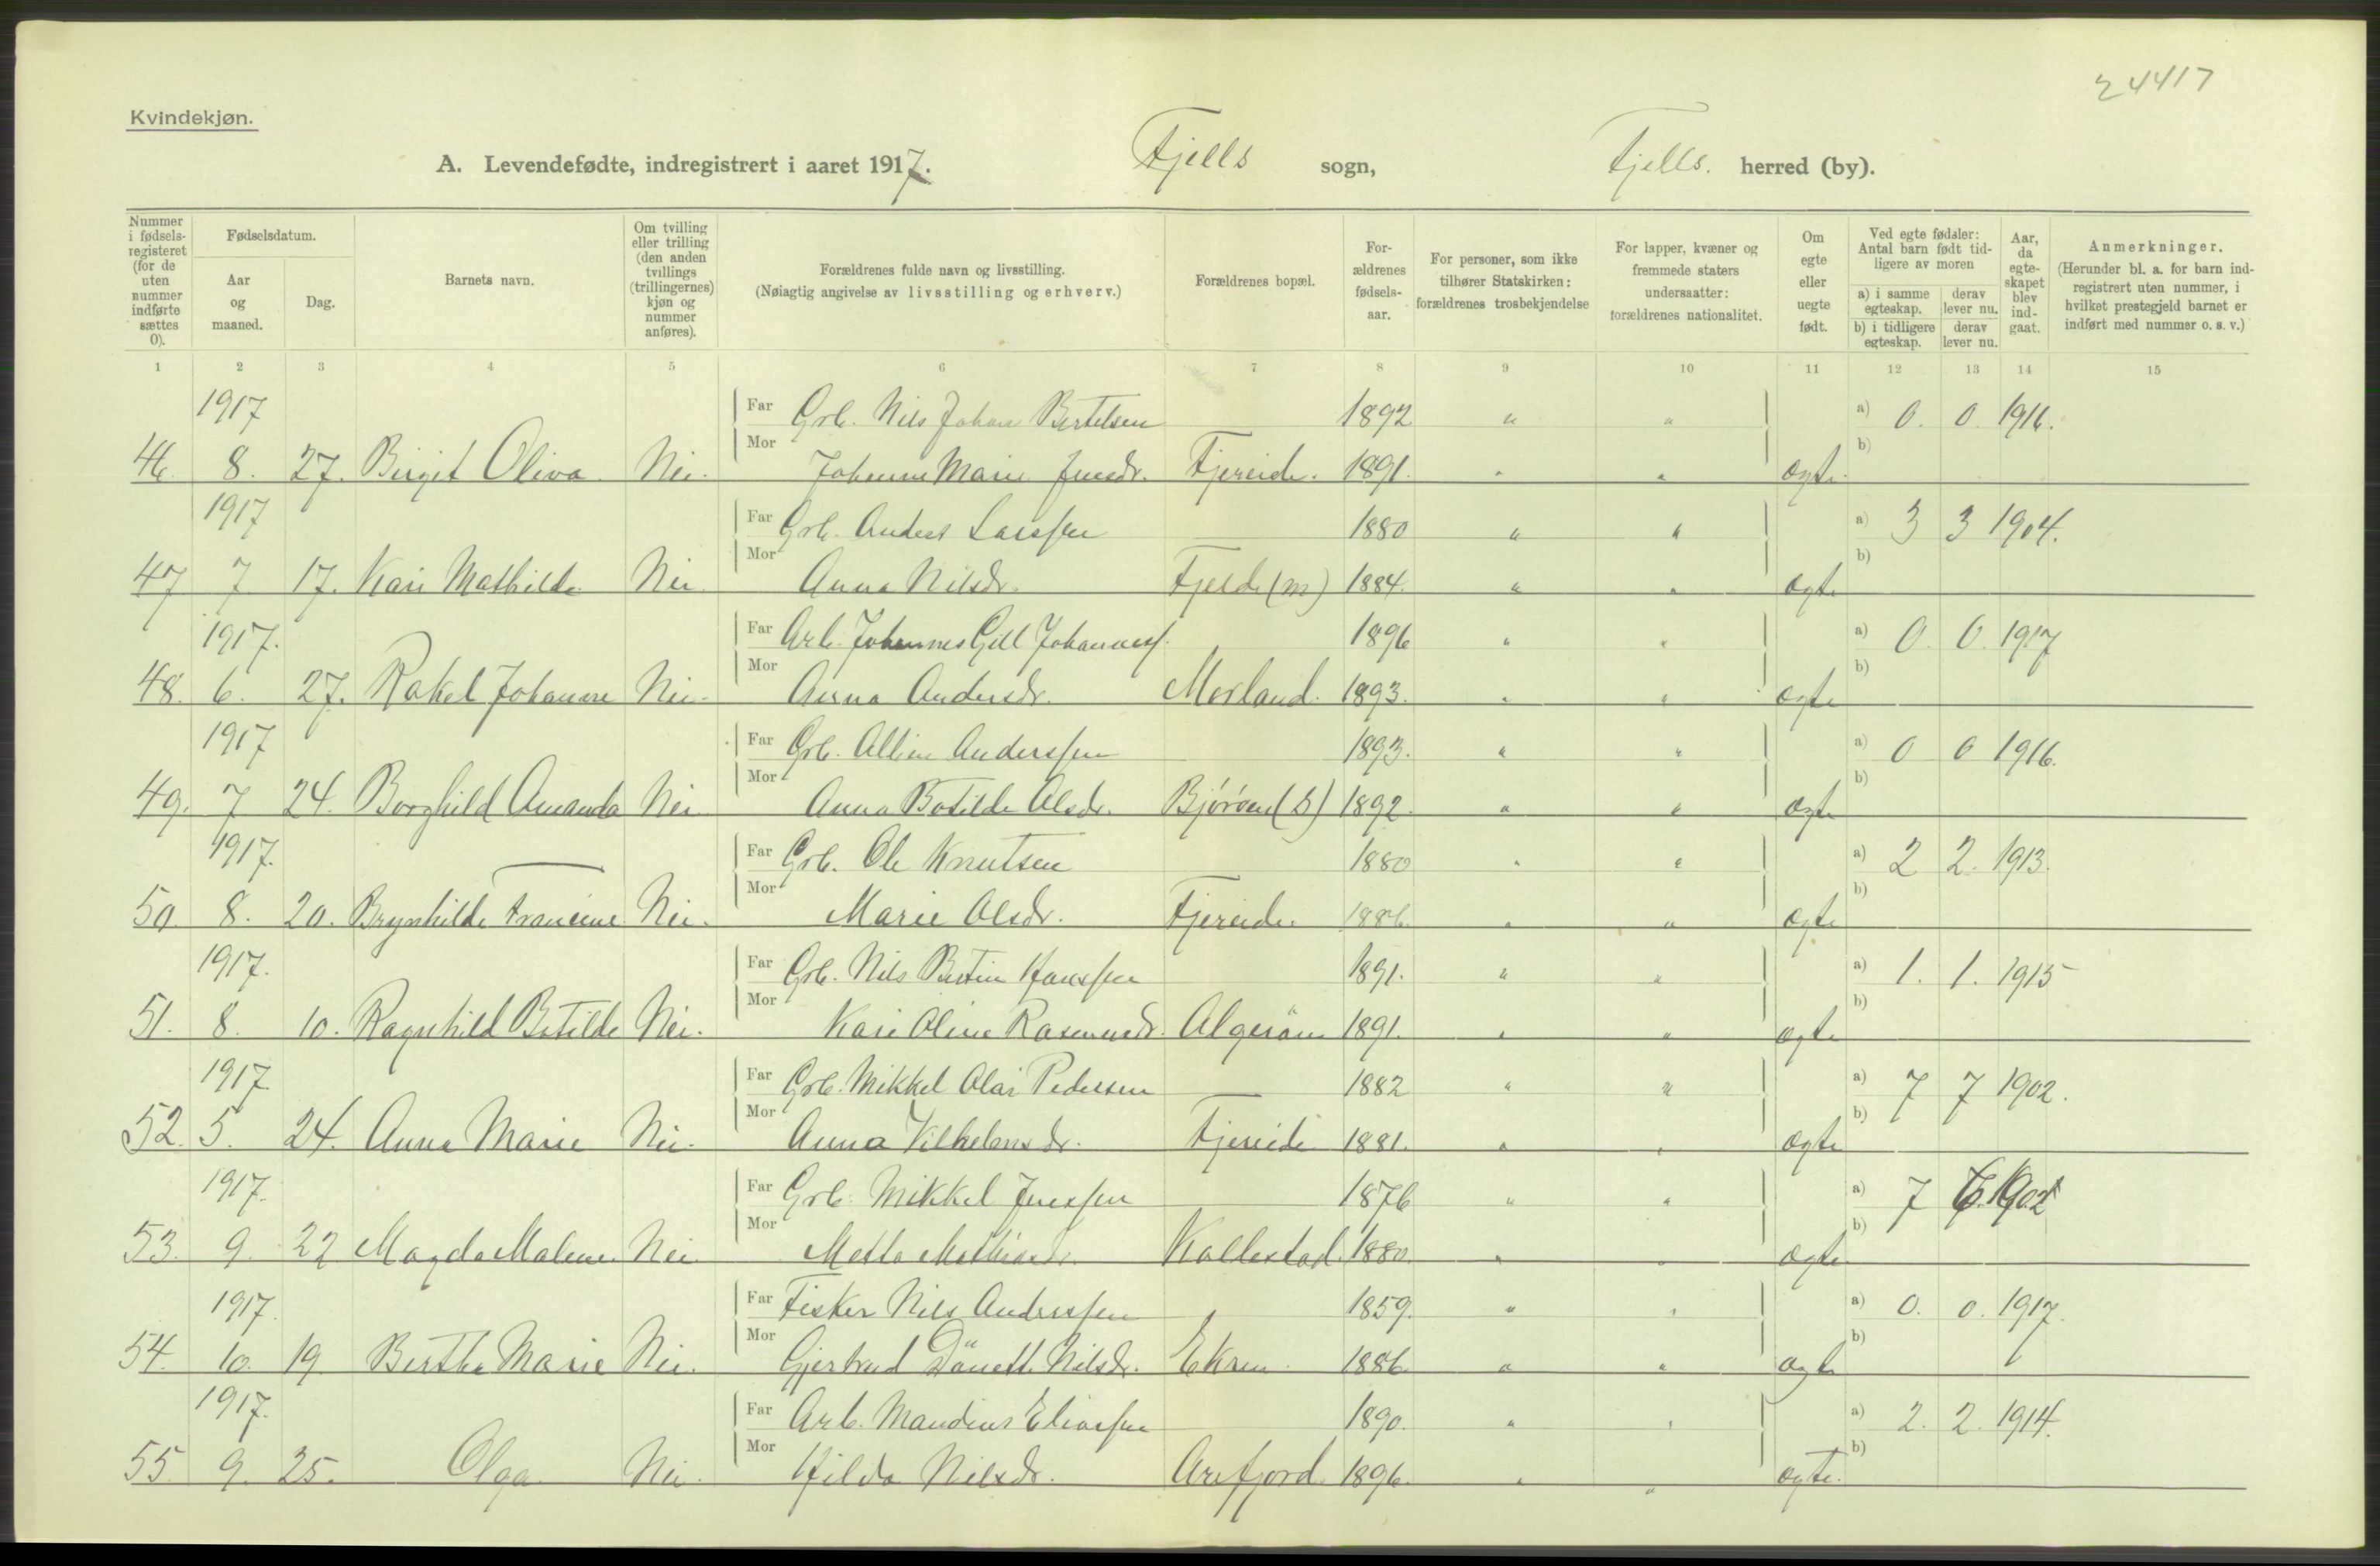 24417
Kvindekjøn.
A. Levendefødte, indregistrert i aaret 1917. Fjells sogn, Fjells. herred (by).
Nummer i fødsels-registeret (for de uten nummer indførte sættes 0). Fødselsdatum. Aar og maaned. Dag. Barnets navn. Om tvilling eller trilling (den anden tvillings (trillingernes) kjøn og nummer anføres). Forældrenes fulde navn og livsstilling. (Nøiagtig angivelse av livsstilling og erhverv.) Forældrenes bopæl. For-ældrenes fødsels-aar. For personer, som ikke tilhører Statskirken: forældrenes trosbekjendelse For lapper, kvæner og fremmede staters undersaatter: forældrenes nationalitet. Om egte eller uegte født. Ved egte fødsler: Antal barn født tid-ligere av moren a) i samme egteskap. derav lever nu. b) i tidligere egteskap. derav lever nu. Aar, da egte-skapet blev ind-gaat. Anmerkninger. (Herunder bl. a. for barn ind-registrert uten nummer, i hvilket prestegjeld barnet er indført med nummer o. s. v.)
1 2 3 4 5 6 7 8 9 10 11 12 13 14 15
1917 Far Grb. Nils Johan Bertelsen 1892 " " a) 0. 0. 1916.
46. 8. 27. Birgit Oliva. Nei. Mor Johanne Marie Jensdr. Fjereide. 1891. " " ægte b)
1917 Far Grb. Anders Larssen 1880 " " a) 3 3 1904.
47 7 17. Kari Mathilde Nei Mor Anna Nilsdr. Fjelde (m) 1884. " " ægte b)
1917. Far Arb. Johannes Gill Johanness. 1896 " " a) 0. 0. 1917
48. 6. 27. Rakel Johanne Nei. Mor Anna Andersdr. Morland. 1893. " " ægte b)
1917 Far Grb. Anderssen 1893. " " a) 0 0 1916.
49. 7 24. Borghild Amanda Nei. Mor Anna Botilde Olsdr. Bjorøen (S) 1892. " " ægte b)
1917. Far Grb. Ole Knutsen 1880 " " a) 2 2. 1913.
50. 8. 20. Brynhilde Francine Nei. Mor Marie Olsdr. Fjereide. 1886. " " ægte b)
1917. Far Grb. Nils Bertin Hanssen 1891. " " a) 1. 1. 1915
51. 8. 10. Ragnhild Botilde Nei. Mor Kari Oline Rasmusdr. Algerøen 1891. " " ægte b)
1917 Far Grb. Mikkel Olai Pedersen 1882 " " a) 7 7 1902.
52. 5. 24. Anna Marie Nei. Mor Anna Vilhelmsdr. Fjereide 1881. " " ægte b)
1917. Far Grb. Mikkel Jenssen 1876 " " a) 7 6. 1902
53. 9. 22 Magda Malene. Nei. Mor Mathiasdr. Kallestad. 1880. " " ægte b)
1917. Far Fisker Nils Anderssen 1859. " " a) 0. 0. 1917.
54. 10. 19 Berthe Marie Nei. Mor Gjertrud Dänette Nilsdr. Ekren. 1886 " " ægte b)
1917. Far Arb. Mandius Eliassen 1890. " " a) 2. 2. 1914.
55 9. 25. Olga Nei. Mor Hilda Nilsdr. Arefjord. 1896. " " ægte. b)